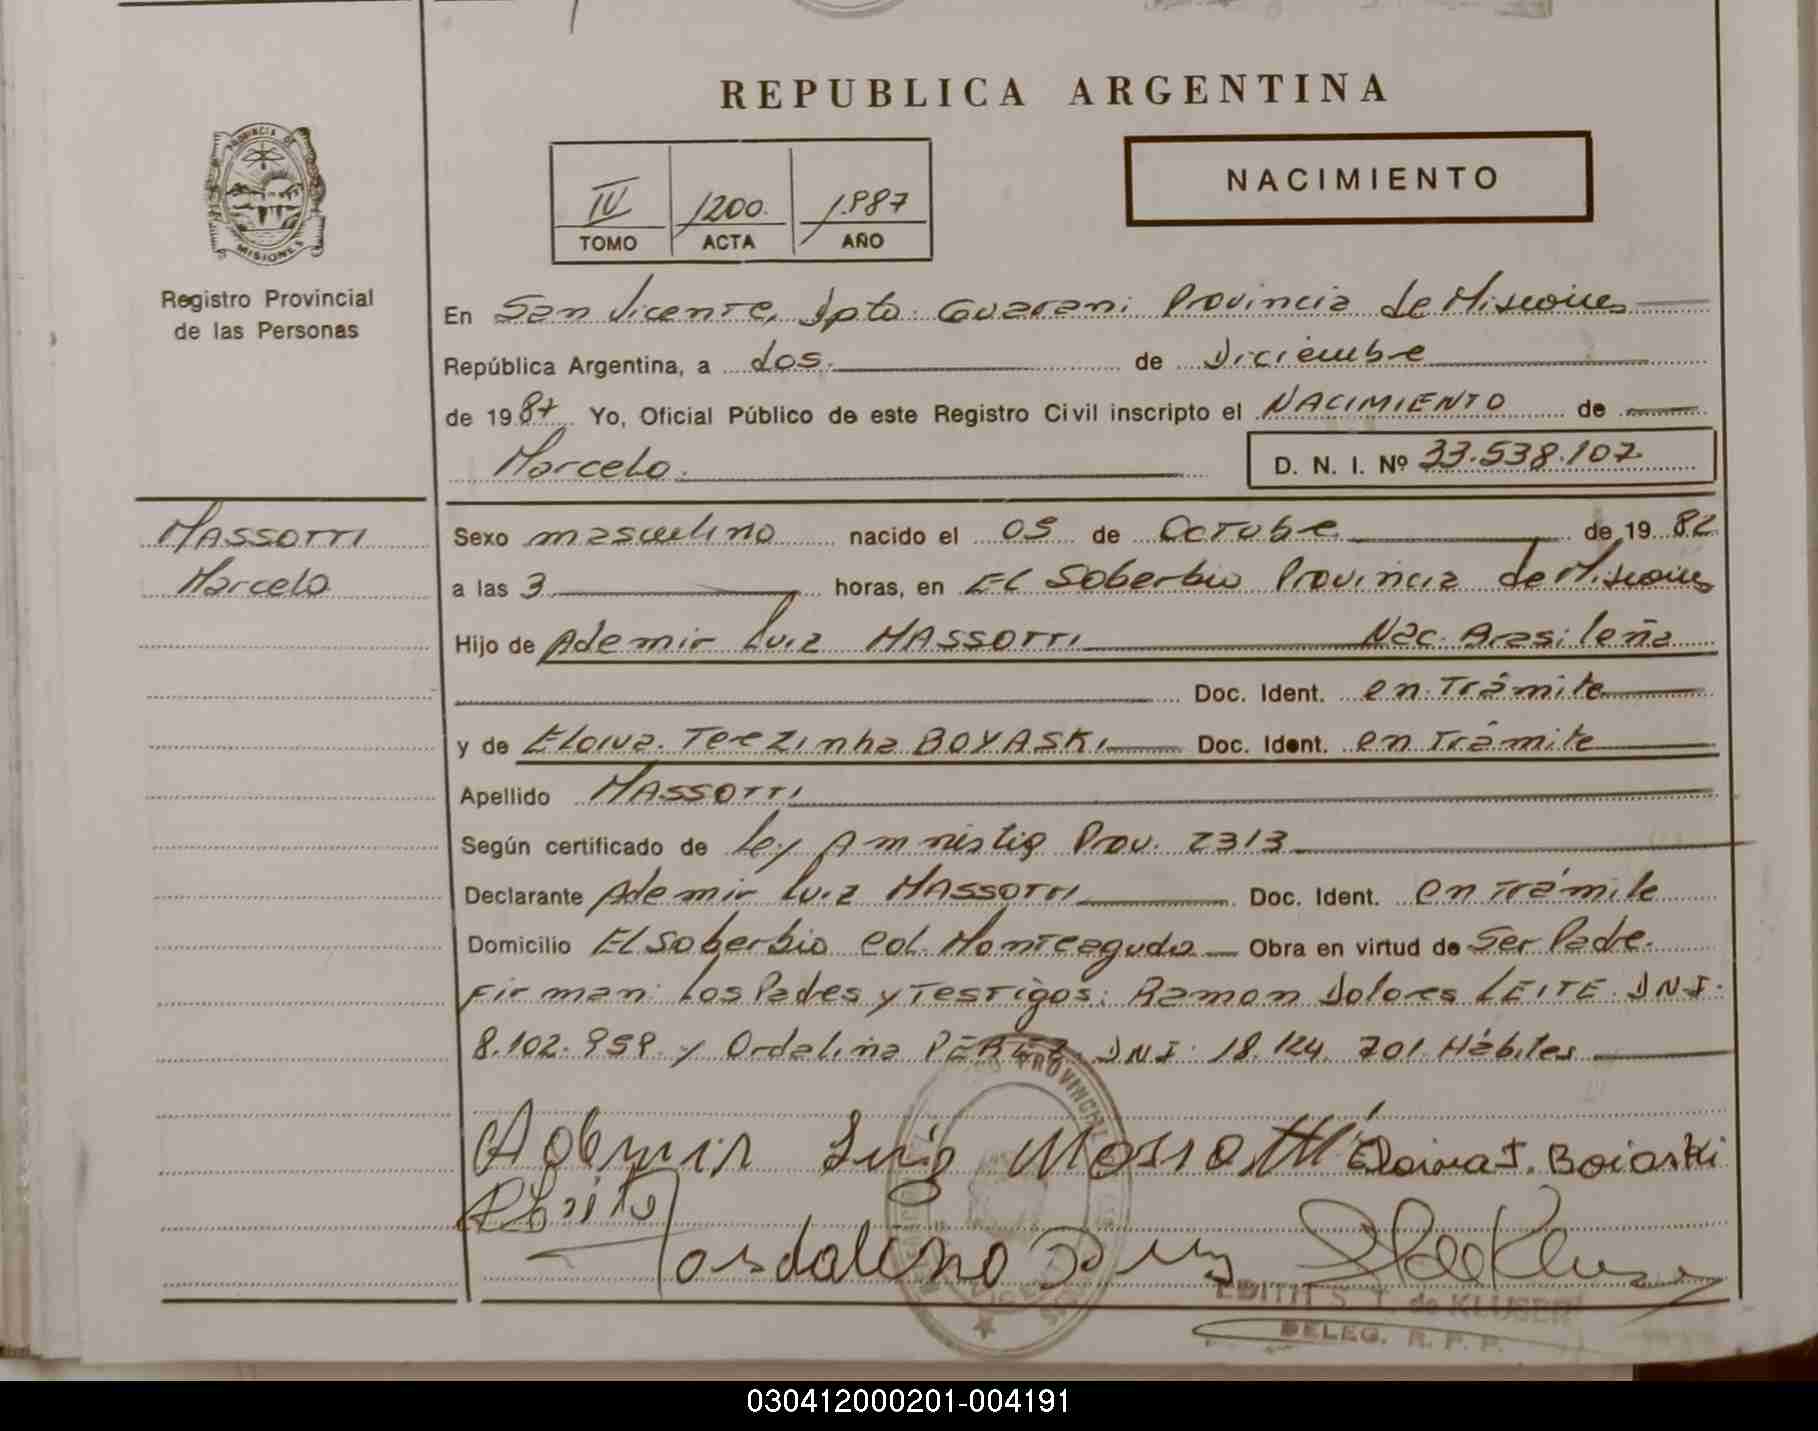 REPUBLICA ARGENTINA
PROVINCIA DE
MISIONES
Registro Provincial
de las Personas
IV 1200 1987
TOMO ACTA AÑO
NACIMIENTO
En San Vicente, Dpto. Guarani Provincia de Misiones
República Argentina, a dos de Diciembre
de 1987 Yo, Oficial Público de este Registro Civil inscripto el NACIMIENTO de
Marcelo. D. N. I. Nº 33.538.107
MASSOTTI
Marcelo
Sexo masculino nacido el 05 de Octubre de 1982
a las 3 horas, en El Soberbio Provincia de Misiones
Hijo de Ademir Luiz MASSOTTI Nac. Brasileña
Doc. Ident. en Trámite
y de Eloiva Terezinha BOYASKI Doc. Ident. en Trámite
Apellido MASSOTTI
Según certificado de Ley Amnistia Prov. 2313
Declarante Ademir Luiz MASSOTTI Doc. Ident. en Trámite
Domicilio El Soberbio Col. Monteagudo Obra en virtud de Ser Padre.
Firman: Los Pades y Testigos: Ramon Dolores LEITE D.N.I.
8.102.959 y Ordalina PEREZ D.N.I. 18.124.701 Hábiles
Ademir Luiz Massotti Eloiva T. Boiaski
PROVINCIAL
EDITH S. T. de KLUSER
DELEG. R. P. P.
030412000201-004191